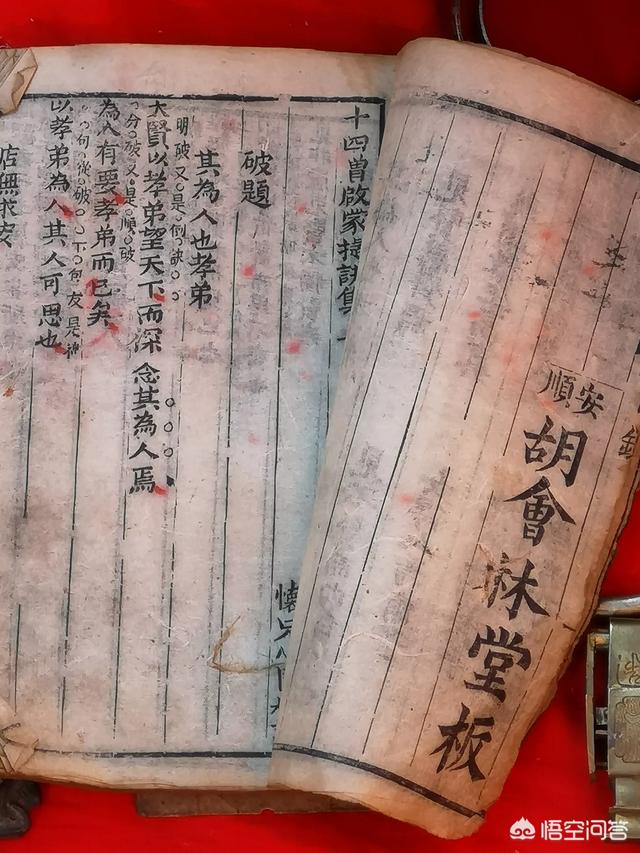 安順
胡會林堂板
十四曾啟蒙捷訣集
破題
其為人也孝弟
明破又是倒
大賢以孝弟望天下而深念其為人焉
分破又是順破
為人有要孝弟而已矣
句從破下句
以孝弟為人其人可思也
居無求安
悟空问答